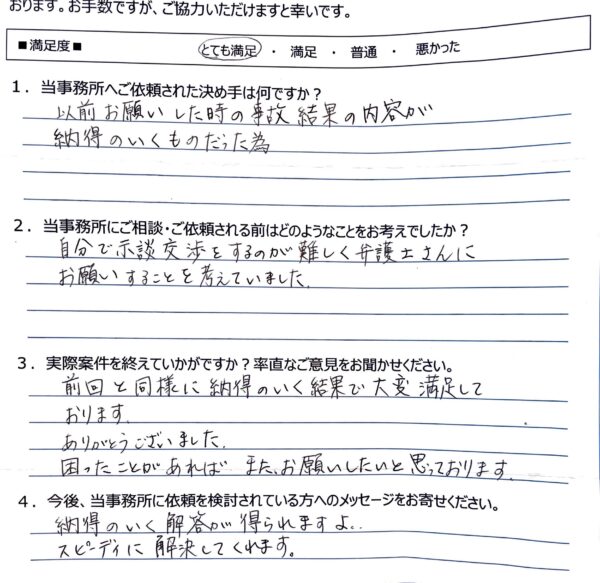 おります。お手数ですが、ご協力いただけますと幸いです。
■満足度■ とても満足 ・ 満足 ・ 普通 ・ 悪かった
1．当事務所へご依頼された決め手は何ですか？
以前お願いした時の事故結果の内容が
納得のいくものだった為
2．当事務所にご相談・ご依頼される前はどのようなことをお考えでしたか？
自分で示談交渉をするのが難しく弁護士さんに
お願いすることを考えていました。
3．実際案件を終えていかがですか？率直なご意見をお聞かせください。
前回と同様に納得のいく結果で大変満足して
おります。
ありがとうございました。
困ったことがあればまた、お願いしたいと思っております。
4．今後、当事務所に依頼を検討されている方へのメッセージをお寄せください。
納得のいく解答が得られますよ。
スピーディに解決してくれます。